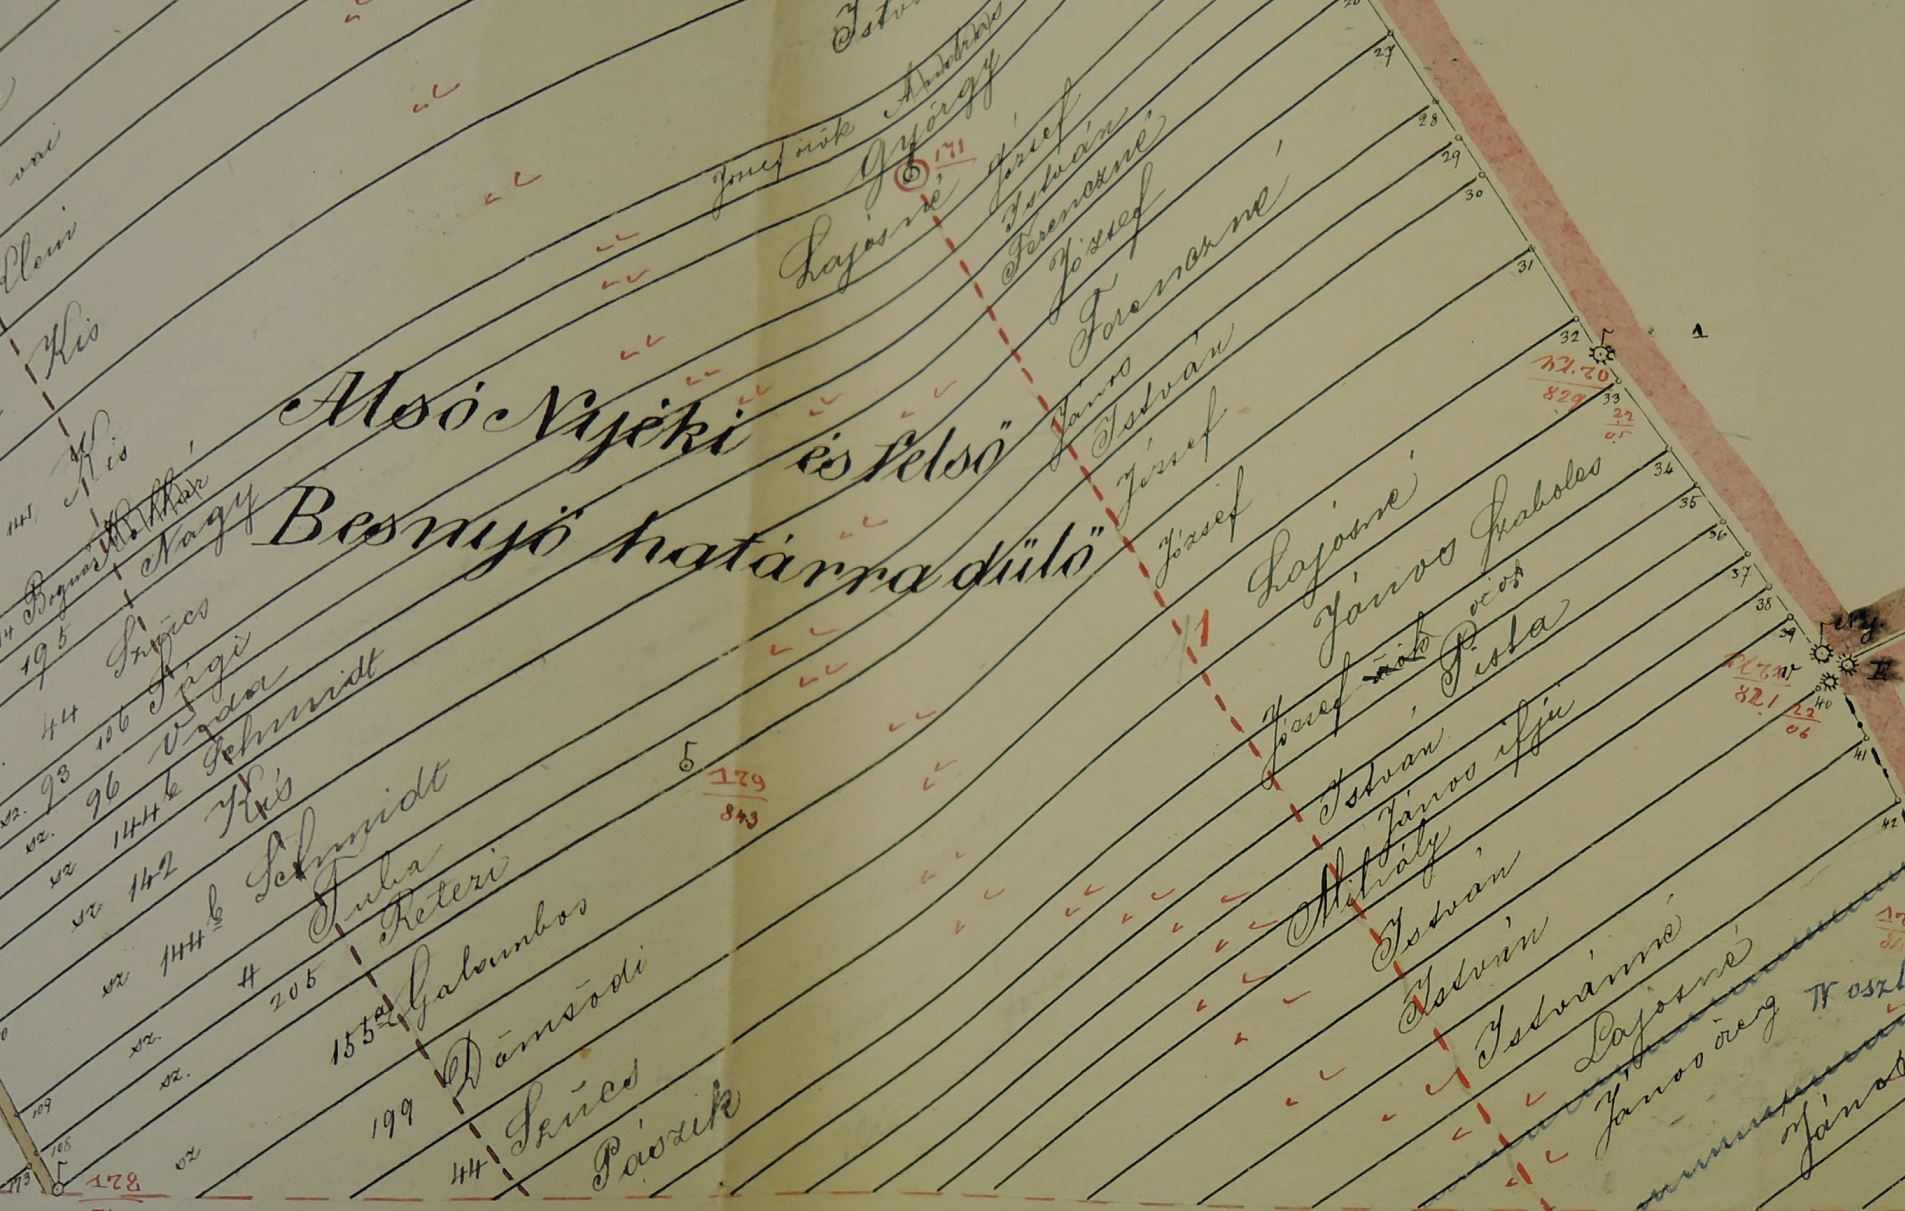 Alsó Nyéki és felső
Besnyő határra dülő
József
András
György
171
Lajosné
József
István
Ferenczné
József
Ferenczné
János
István
József
József
Lajosné
János Szabolcs
József
Pista
István
János ifjú
Mihály
István
István
Istvánné
Lajosné
János öreg
János
IV oszt
27
28
29
30
31
32
33
34
35
36
37
38
39
40
41
42
1
829
22
05
821
22
06
1
Kis
Kis
Molnár
Bognár
195 Nagy
44 Szücs
sz. 93 106 Sági
sz. 96 Vida
sz 144 b Schmidt
sz 142 Kis
sz 144 b Schmidt
4 Tuba
sz. 205 Retezi
sz. 155a Galambos
199 Dömsödi
sz 44 Szücs
Pászik
179
843
109
108
113
178